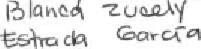 Blanca zucely
Estrada García